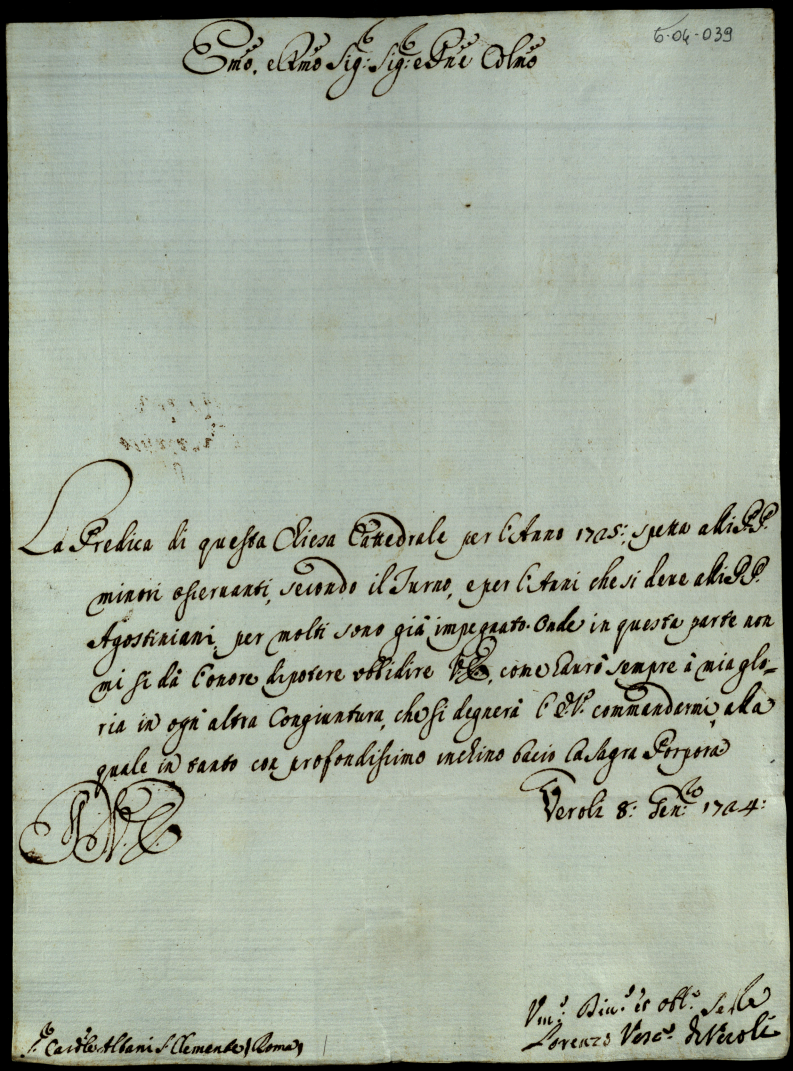 6-04-039
Emo. e Rmo Sig: Sig: e Pne Colmo
La Predica di questa Chiesa Cattedrale per l'Anno 1725: spetta alli PP.
minori osservanti, secondo il Turno, e per l'Anni che si deve alli PP.
Agostiniani, per molti sono già impegnato. Onde in questa parte non
mi si dà l'onore di potere obbidire V.E., come l'aurò sempre à mia glo-
ria in ogn'altra Congiuntura, che si degnerà l'E.V. commandarmi, alla
quale in tanto con profondissimo inchino bacio la Sagra Porpora
Veroli 8: Gen.ro 1724:
Vm.o Diu.o et obl.o
Lorenzo Vesc.o di Veroli
S.r Cardle Albani S. Clemente (Roma)